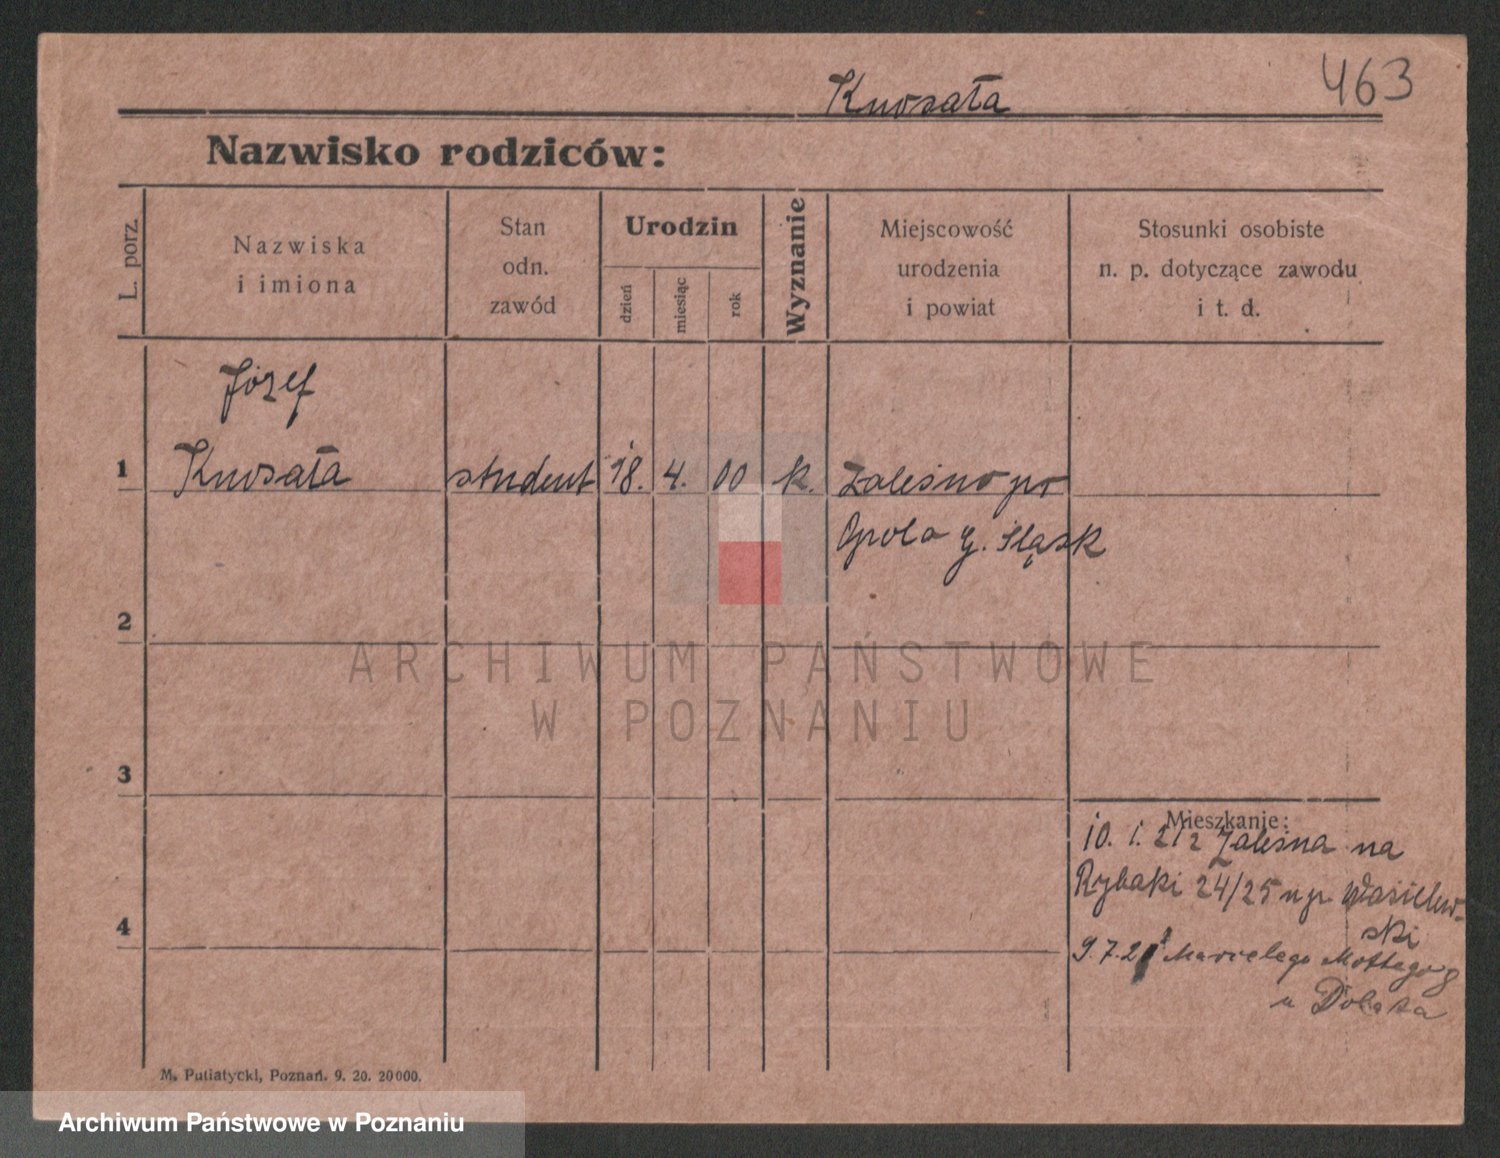 Knosała
463
Nazwisko rodziców:
L. porz.
Nazwiska
i imiona
Stan
odn.
zawód
Urodzin
dzień
miesiąc
rok
Wyznanie
Miejscowość
urodzenia
i powiat
Stosunki osobiste
n. p. dotyczące zawodu
i t. d.
Józef
1 Knosała student 18. 4. 00 k. Zaleśno po
Opola g. Śląsk
2
ARCHIWUM PAŃSTWOWE
W POZNANIU
3
Mieszkanie:
10. 1. 21 z Zaleśna na
Rybaki 24/25 u p. Wasilew-
ski
4
9.7.21 Marcelego Mottego 8
u
M. Putiatycki, Poznań. 9. 20. 20000.
Archiwum Państwowe w Poznaniu